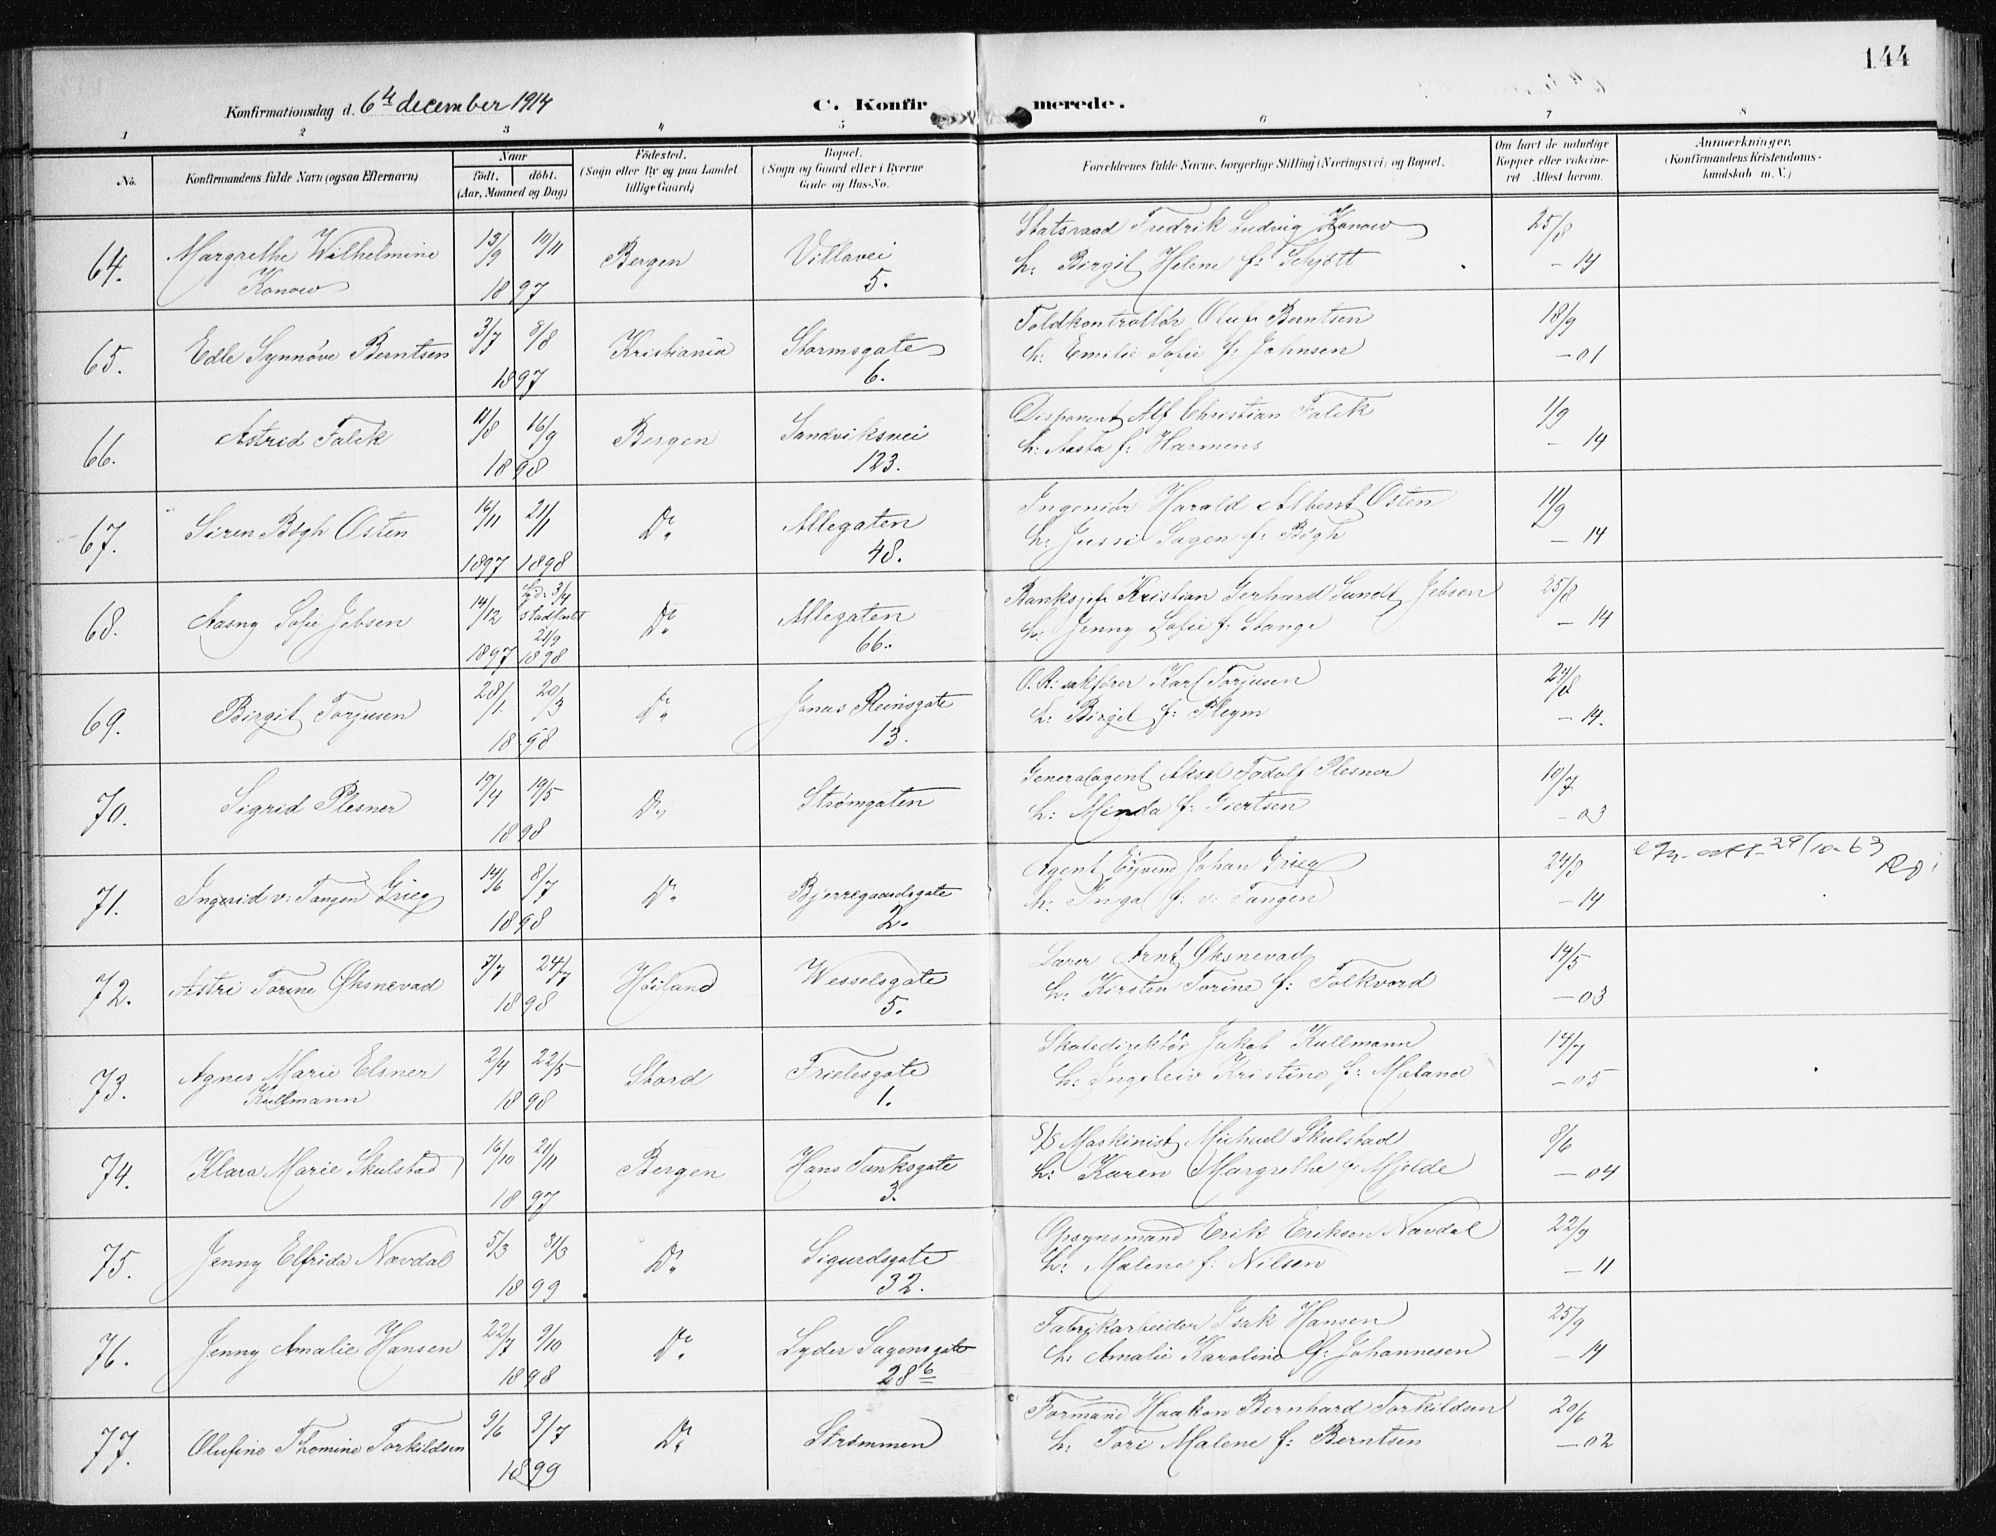 144
Konfirmationsdag d. 6te december 1914 C. Konfirmerede.
1 2 3 4 5 6 7 8
No. Konfirmandens fulde Navn (ogsaa Efternavn) Naar født. døbt. (Aar, Maaned og Dag) Fødested. (Sogn eller By og paa Landet tillige Gaard) Bopæl. (Sogn og Gaard eller i Byerne Gade og Hus-No. Forældrenes fulde Navne, borgerlige Stilling (Næringsvei) og Bopæl. Om havt de naturlige Kopper eller vakcineret Attest herom. Anmærkninger. (Konfirmandens Kristendomskundskab m. V.)
64. Margrethe Wilhelmine Konow 13/9 10/11 1897 Bergen Villavei 5. Statsraad Fredrik Ludvig Konow
h: Birgit Helene f: Schjøtt 25/8 – 14
65. Edle Synnøve Berntsen 3/7 8/8 1897 Kristiania Stormsgate 6. Toldkontrollør Oluf Berntsen
h: Emilie Sofie f: Johnsen 18/9 – 01
66. Astrid Falck 11/8 16/9 1898 Bergen Sandviksvei 123. Disponent Alf Christian Falck
h: Aasta f: Harmens 1/9 – 14
67. Siren Bøgh Osten 16/11 1897 21/1 1898 Do. Allegaten 48. Ingeniør Harald Albert Osten
h: Jussi Sagen f: Bøgh 11/9 – 14
68. Aasny Sofie Jebsen 14/12 1897 3/4 stadfæstet 25/9 1898 Do. Allegaten 66. Banksjef Kristian Gerhard Sundt Jebsen
h: Jenny Sofie f: Stange 25/8 – 14
69. Birgit Torjusen 28/1 20/3 1898 Do. Jonas Reinsgate 13. O.R. sakfører Karl Torjusen
h: Birgit f: Pleym 24/8 – 14.
70. Sigrid Plesner 19/4 19/5 1898 Do. Strømgaten Generalagent Aksel Todolf Plesner
h: Minda f: Giertsen 10/7 – 03
71. Ingrid v: Tangen Grieg 14/6 8/7 1898 Do. Bjerregaardsgate 2. Agent Eyvind Johan Grieg
h: Inga f: v: Tangen 24/8 – 14 29/10-63
72. Astri Torine Øksnevad 7/7 24/7 1898 Høiland Wesselsgate 5. Lærer Arnt Øksnevad
h: Kirsten Torine f: Folkvord 14/5 – 03
73. Agnes Marie Elsner Kullmann 2/4 22/5 1898 Stord Frielesgate 1. Skoledirektør Jakob Kullmann
h: Ingeleiv Kristine f: Moland 14/7 – 05
74. Klara Marie Skulstad 16/10 21/11 1897 Bergen Hans Tanksgate 3. S/S Maskinist Michael Skulstad
h: Karen Margrethe f: Mjelde 8/6 – 04
75. Jenny Elfrida Navdal 5/3 31/3 1899 Do. Sigurdsgate 32. Opsynsmand Erik Erikson Navdal
h: Malene f: Nilsen 22/9 – 11
76. Jenny Amalie Hansen 22/7 9/10 1898 Do. Lyder Sagensgate 28b Fabrikarbeider Isak Hansen
h: Amalie Karoline f: Johannesen 25/9 – 14
77. Olufine Thomine Torkildsen 9/6 9/7 1899 Do. Strømmen Formand Haakon Bernhard Torkildsen
h: Tori Malene f: Berntsen 20/6 – 02